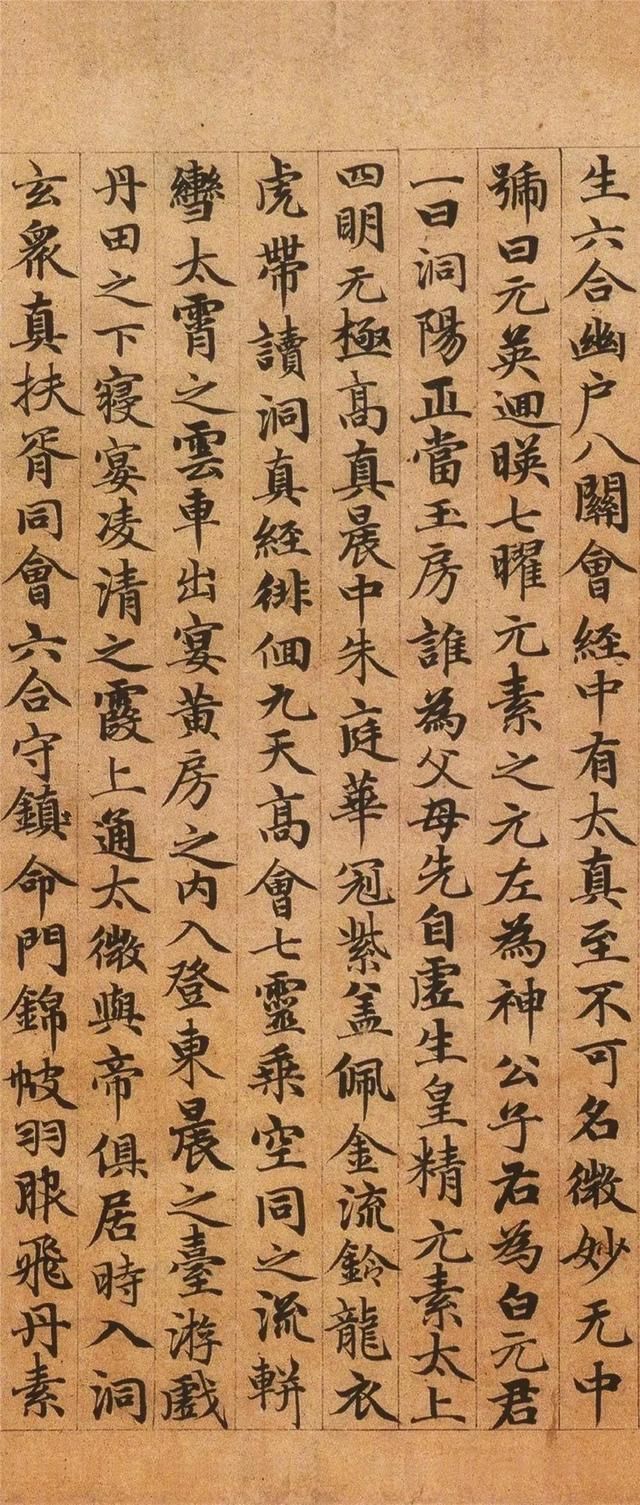 生六合幽户八關會經中有太真至不可名微妙无中
號曰元英迴暎七曜元素之元左為神公子右為白元君
一曰洞陽正當玉房誰為父母先自虛生皇精元素太上
四明元極高真晨中朱庭華冠紫盖佩金流鈴龍衣
虎帶讀洞真經徘徊九天高會七靈乘空同之流軿
轡太霄之雲車出宴黄房之内入登東晨之臺游戲
丹田之下寝宴凌清之霞上通太微與帝俱居時入洞
玄衆真扶胥同會六合守鎮命門錦帔羽服飛丹素